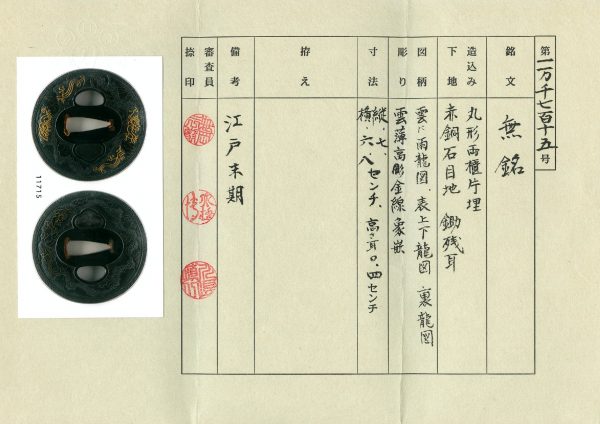 第一万千七百十五号
銘文 無銘
造込み 丸形両櫃片埋
下地 赤銅石目地 鋤残耳
図柄 雲に雨龍図、表上下龍図 裏龍図
彫り 雲薄高彫金線象嵌
寸法 縦、七、センチ、高さ耳〇、四センチ
横、六、八
拵え
備考 江戸末期
審査員
捺印
11715